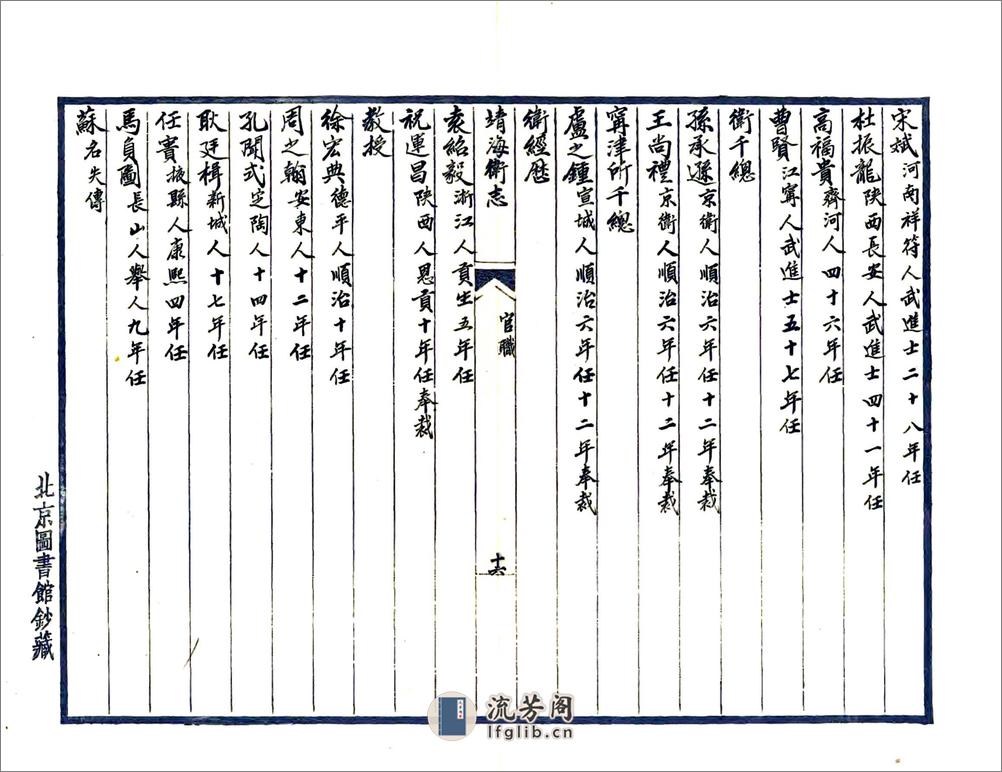 宋斌河南祥符人武進士二十八年任
杜振龍陝西長安人武進士四十一年任
高福貴齊河人四十六年任
曹賢江寧人武進士五十七年任
衛千總
孫承遜京衛人順治六年任十二年奉裁
王尚禮京衛人順治六年任十二年奉裁
寗津所千總
盧之鍾宣城人順治六年任十二年奉裁
衛經歴
靖海衛志
官職
十六
袁紹毅浙江人貢生五年任
祝運昌陝西人恩貢十年任奉裁
教授
徐宏典德平人順治十年任
周之翰安東人十二年任
孔聞式定陶人十四年任
耿廷楫新城人十七年任
任賚掖縣人康熙四年任
馬負圖長山人舉人九年任
蘇名失傳
北京圖書館鈔藏
流芳阁
lfglib.cn